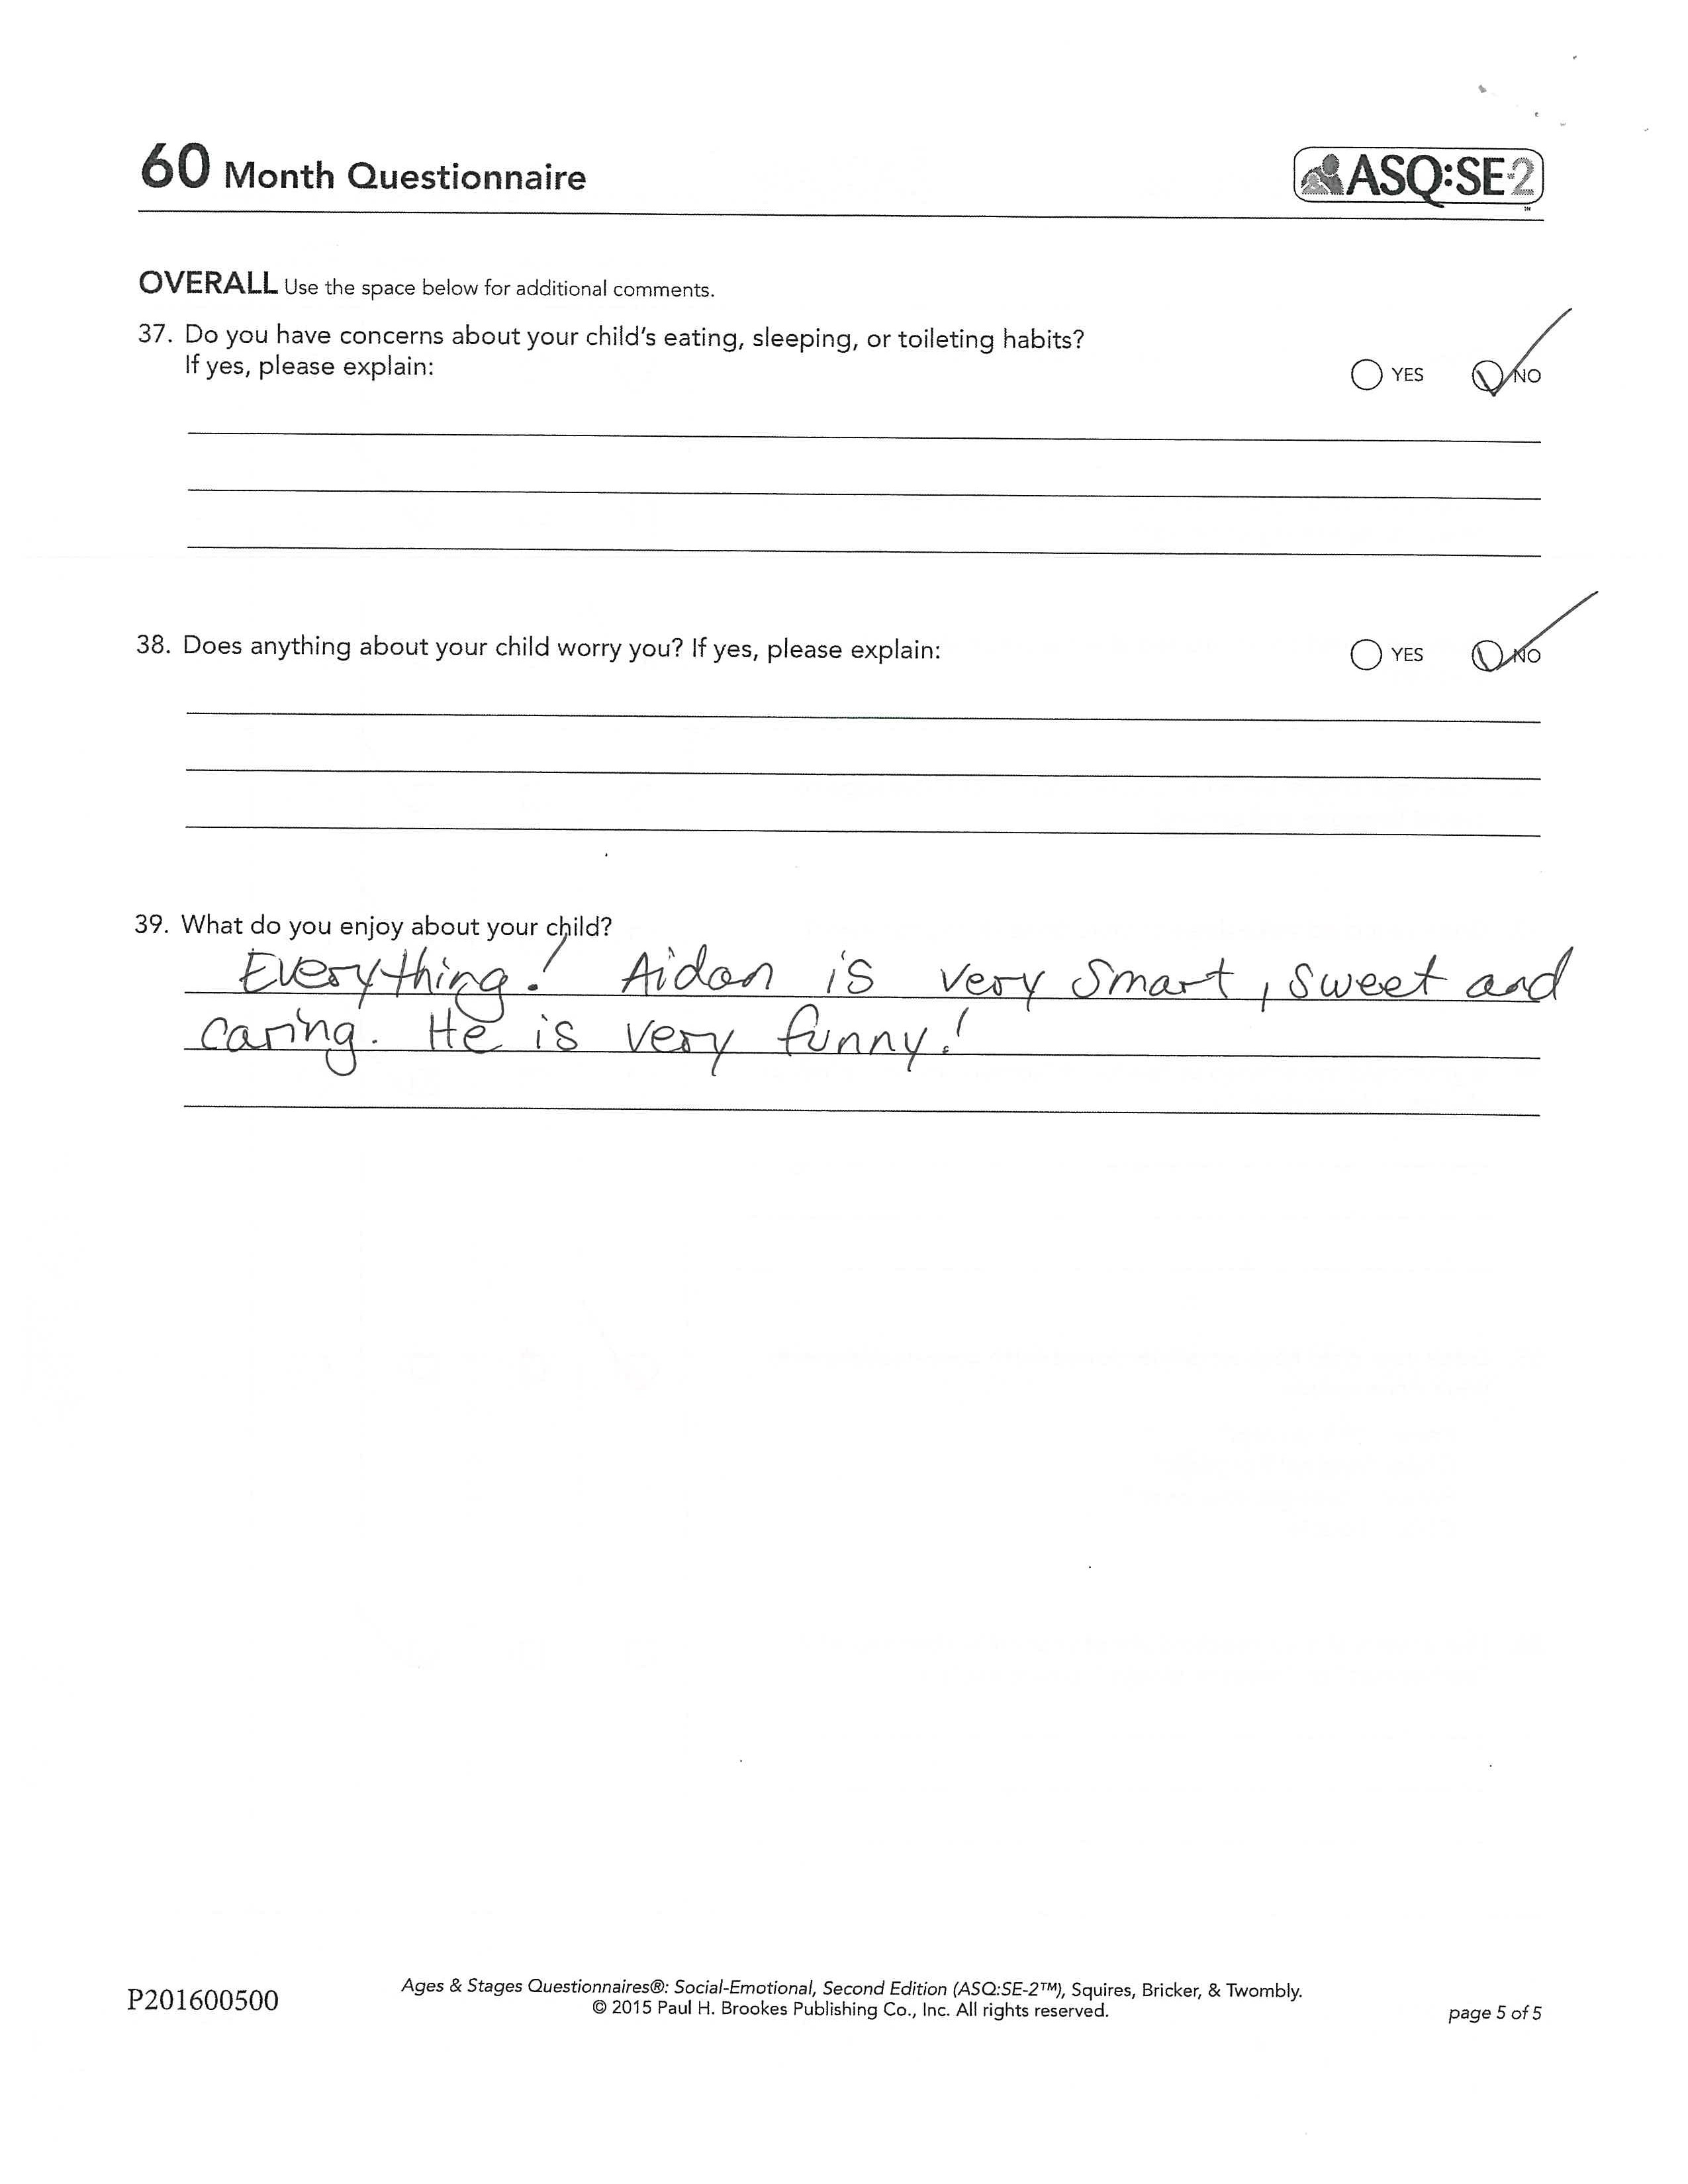 60 Month Questionnaire
ASQ:SE-2™
OVERALL Use the space below for additional comments.
37. Do you have concerns about your child's eating, sleeping, or toileting habits?
If yes, please explain:
YES NO
38. Does anything about your child worry you? If yes, please explain:
YES NO
39. What do you enjoy about your child?
Everything! Aidan is very smart, sweet and
caring. He is very funny!
P201600500
Ages & Stages Questionnaires®: Social-Emotional, Second Edition (ASQ:SE-2™), Squires, Bricker, & Twombly.
© 2015 Paul H. Brookes Publishing Co., Inc. All rights reserved.
page 5 of 5